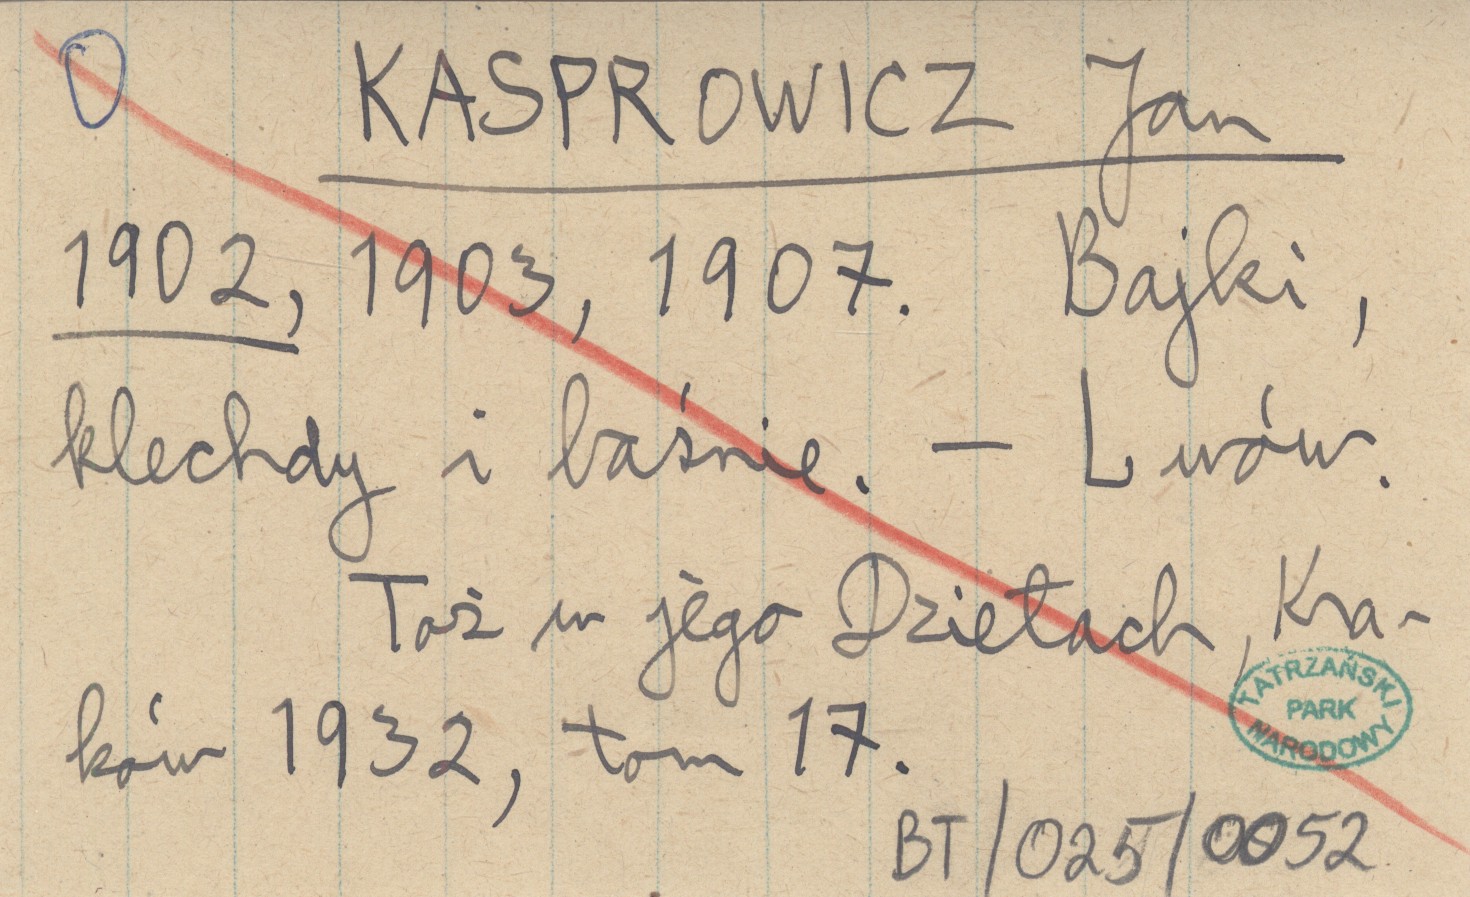 0 KASPROWICZ Jan
1902, 1903, 1907. Bajki,
klechdy i baśnie. — Lwów.
Toż w jego Dziełach, Kra-
ków 1932, tom 17.
TATRZAŃSKI
PARK
NARODOWY
BT/025/0052